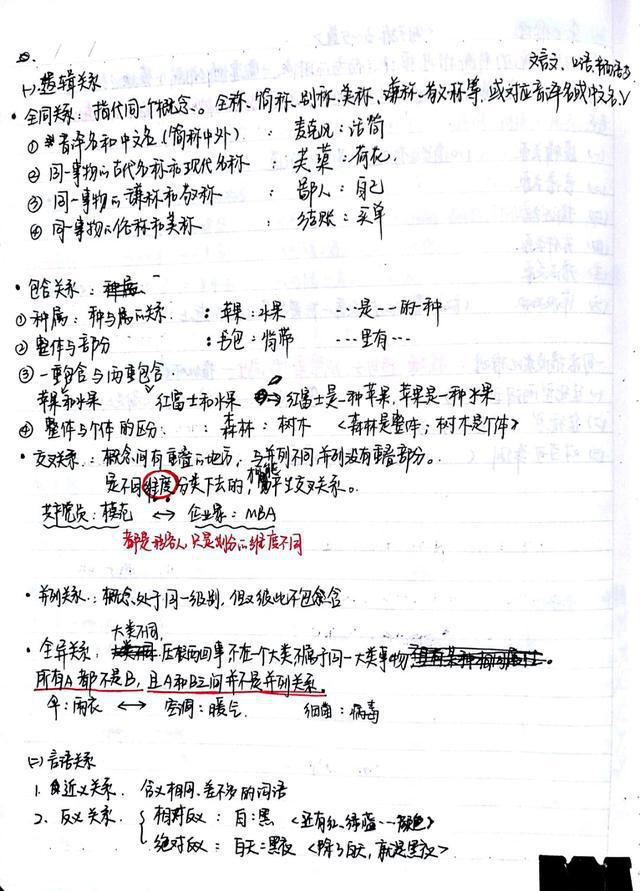 文言文、口语书面语
㈠ 逻辑关系
• 全同关系：指代同一个概念。全称、简称、别称、美称、谦称、敬称等，或对应音译名或中文名
① 音译名和中文名（简称中外）：麦克风：话筒
② 同一事物的古代名称和现代名称：芙蕖：荷花
③ 同一事物的谦称和敬称：鄙人：自己
④ 同一事物的俗称和美称：结账：买单
• 包含关系：种属
① 种属：种与属的关系：苹果：水果 …是…的一种
② 整体与部分：书包：背带 …里有…
③ 一重包含与两重包含
苹果和水果 VS 红富士和水果 红富士是一种苹果，苹果是一种水果
④ 整体与个体的区分：森林：树木〈森林是整体；树木是个体〉
• 交叉关系：概念间有重叠的地方，与并列不同并列没有重叠部分。
是不同维度分类下去的，才能产生交叉关系。
共产党员：模范 ↔ 企业家：MBA
都是形容人只是划分的维度不同
• 并列关系：概念处于同一级别，但又彼此不包含
大类不同，
• 全异关系：压根两回事不在一个大类不属于同一大类事物
所有A都不是B，且A和B之间并不是并列关系。
伞：雨衣 ↔ 空调：暖气 细菌：病毒
㈡ 言语关系
1. 近义关系. 含义相同、差不多的词语
2. 反义关系. { 相对反义：白：黑〈还有红、绿蓝…颜色〉
绝对反义：白天：黑夜〈除了白天，就是黑夜〉